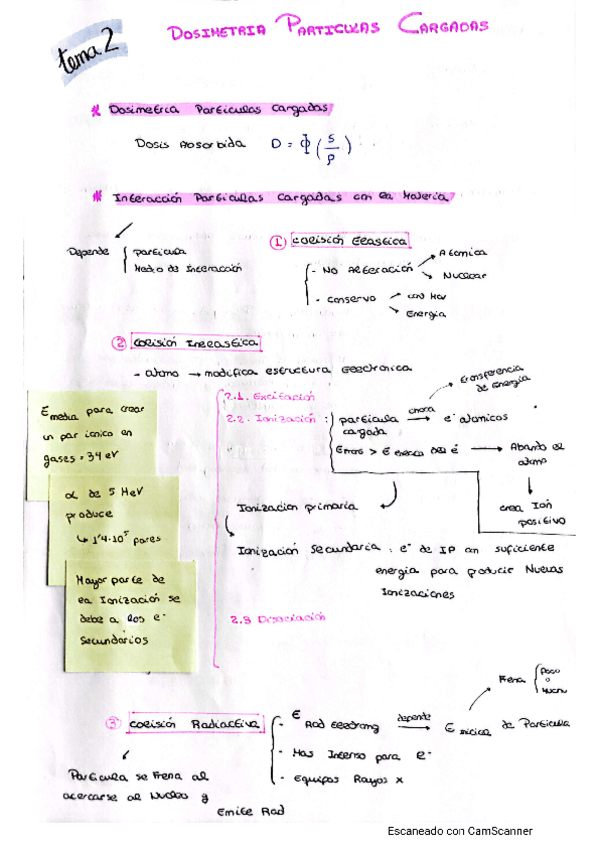 tema 2
DOSIMETRIA PARTICULAS CARGADAS
* Dosimetria Particulas Cargadas
Dosis Absorbida D = Φ (S/ρ)
* Interacción Particulas Cargadas con la Materia
Depende
particula
Medio de Interacción
① Colisión Elastica
- No Alteración
Atomica
Nuclear
- Conservo
Energia
② Colisión Inelastica
- atomo → modifica estructura electronica
2.1. Excitación
2.2. Ionización :
particula cargada
choca
e⁻ atomicos
transferencia
de energia
Abando el
atomo
crea Ion
positivo
E media para crear
un par ionico en
gases = 34 eV
α de 5 MeV
produce
↳ 1'4·10⁵ pares
Mayor parte de
la Ionización se
debe a los e⁻
secundarios
Ionización primaria
Ionización Secundaria : e⁻ de IP con suficiente
energia para producir Nuevas
Ionizaciones
2.3 Disociación
③ Colisión Radiactiva
- E Rad
depende
E inicial de Particula
Frena
Poco
o
Mucho
- Mas Intenso para e⁻
- Equipos Rayos X
Particula se Frena al
acercarse al Nucleo y
Emite Rad
Escaneado con CamScanner